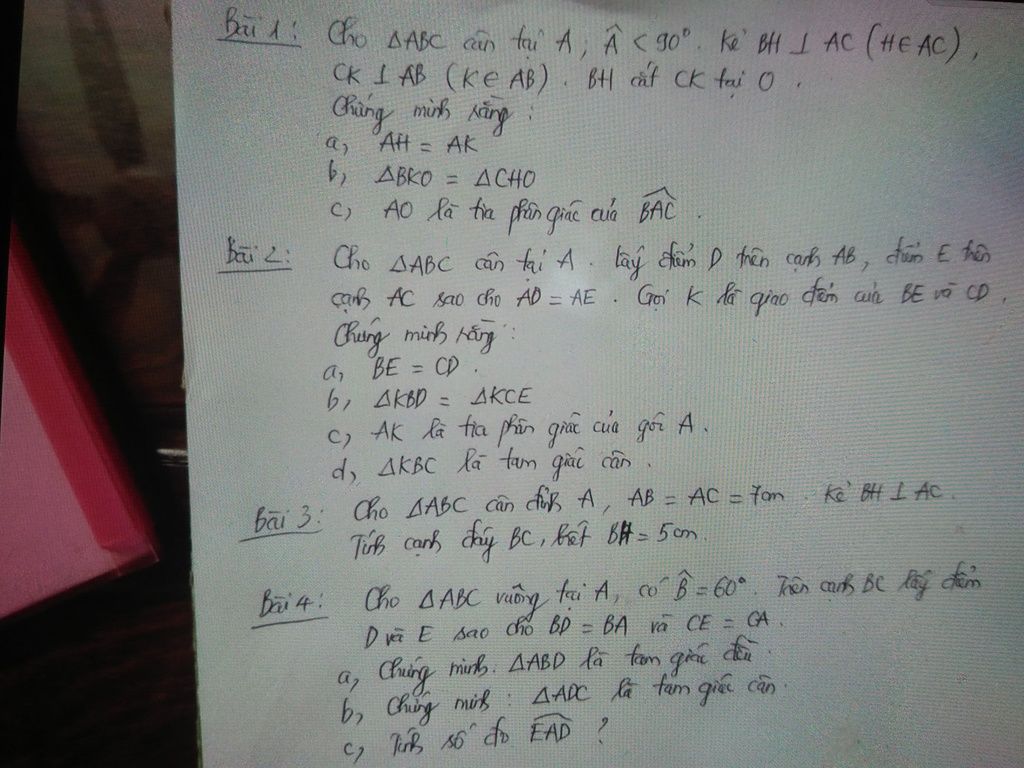 Bài 1: Cho ΔABC cân tại A, Â < 90°. Kẻ BH ⊥ AC (H∈AC),
CK ⊥ AB (K∈AB). BH cắt CK tại O.
Chứng minh rằng:
a, AH = AK
b, ΔBKO = ΔCHO
c, AO là tia phân giác của BAC.
Bài 2: Cho ΔABC cân tại A. Lấy điểm D trên cạnh AB, điểm E trên
cạnh AC sao cho AD = AE. Gọi K là giao điểm của BE và CD.
Chứng minh rằng:
a, BE = CD.
b, ΔKBD = ΔKCE
c, AK là tia phân giác của góc A.
d, ΔKBC là tam giác cân.
Bài 3: Cho ΔABC cân đỉnh A, AB = AC = 7cm. Kẻ BH ⊥ AC.
Tính cạnh đáy BC, biết BH = 5cm.
Bài 4: Cho ΔABC vuông tại A, có B̂ = 60°. Trên cạnh BC lấy điểm
D và E sao cho BD = BA và CE = CA.
a, Chứng minh: ΔABD là tam giác đều.
b, Chứng minh: ΔADC là tam giác cân.
c, Tính số đo EAD?